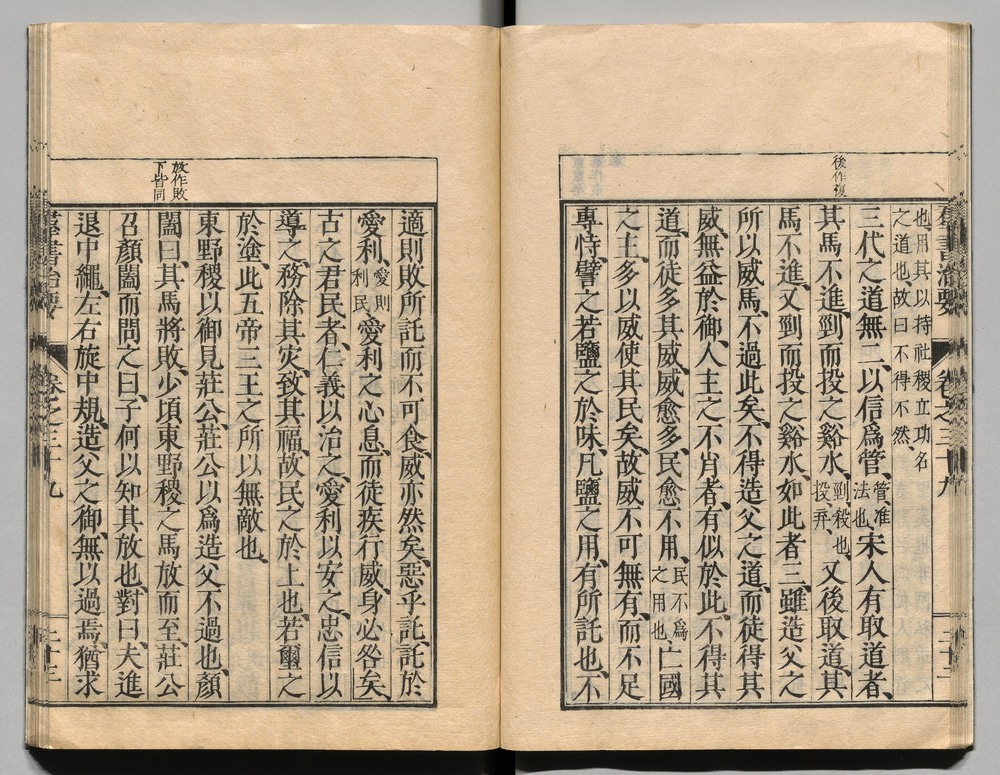 後作復
也用其以持社稷立功名
之道也故曰不得不然
三代之道無二以信爲管管準法也宋人有取道者
其馬不進剄而投之谿水剄殺也投弃又後取道其
馬不進又剄而投之谿水如此者三雖造父之
所以威馬不過此矣不得造父之道而徒得其
威無益於御人主之不肖者有似於此不得其
道而徒多其威威愈多民愈不用民不爲之用也亡國
之主多以威使其民矣故威不可無有而不足
專恃譬之若鹽之於味凡鹽之用有所託也不
放作敗
下皆同
適則敗所託而不可食威亦然矣惡乎託託於
愛利愛則利民愛利之心息而徒疾行威身必咎矣
古之君民者仁義以治之愛利以安之忠信以
導之務除其灾致其福故民之於上也若璽之
於塗此五帝三王之所以無敵也
東野稷以御見莊公莊公以爲造父不過也顏
闔曰其馬將敗少頃東野稷之馬放而至莊公
召顏闔而問之曰子何以知其放也對曰夫進
退中繩左右旋中規造父之御無以過焉猶求
羣書治要 卷之三十九 二十三